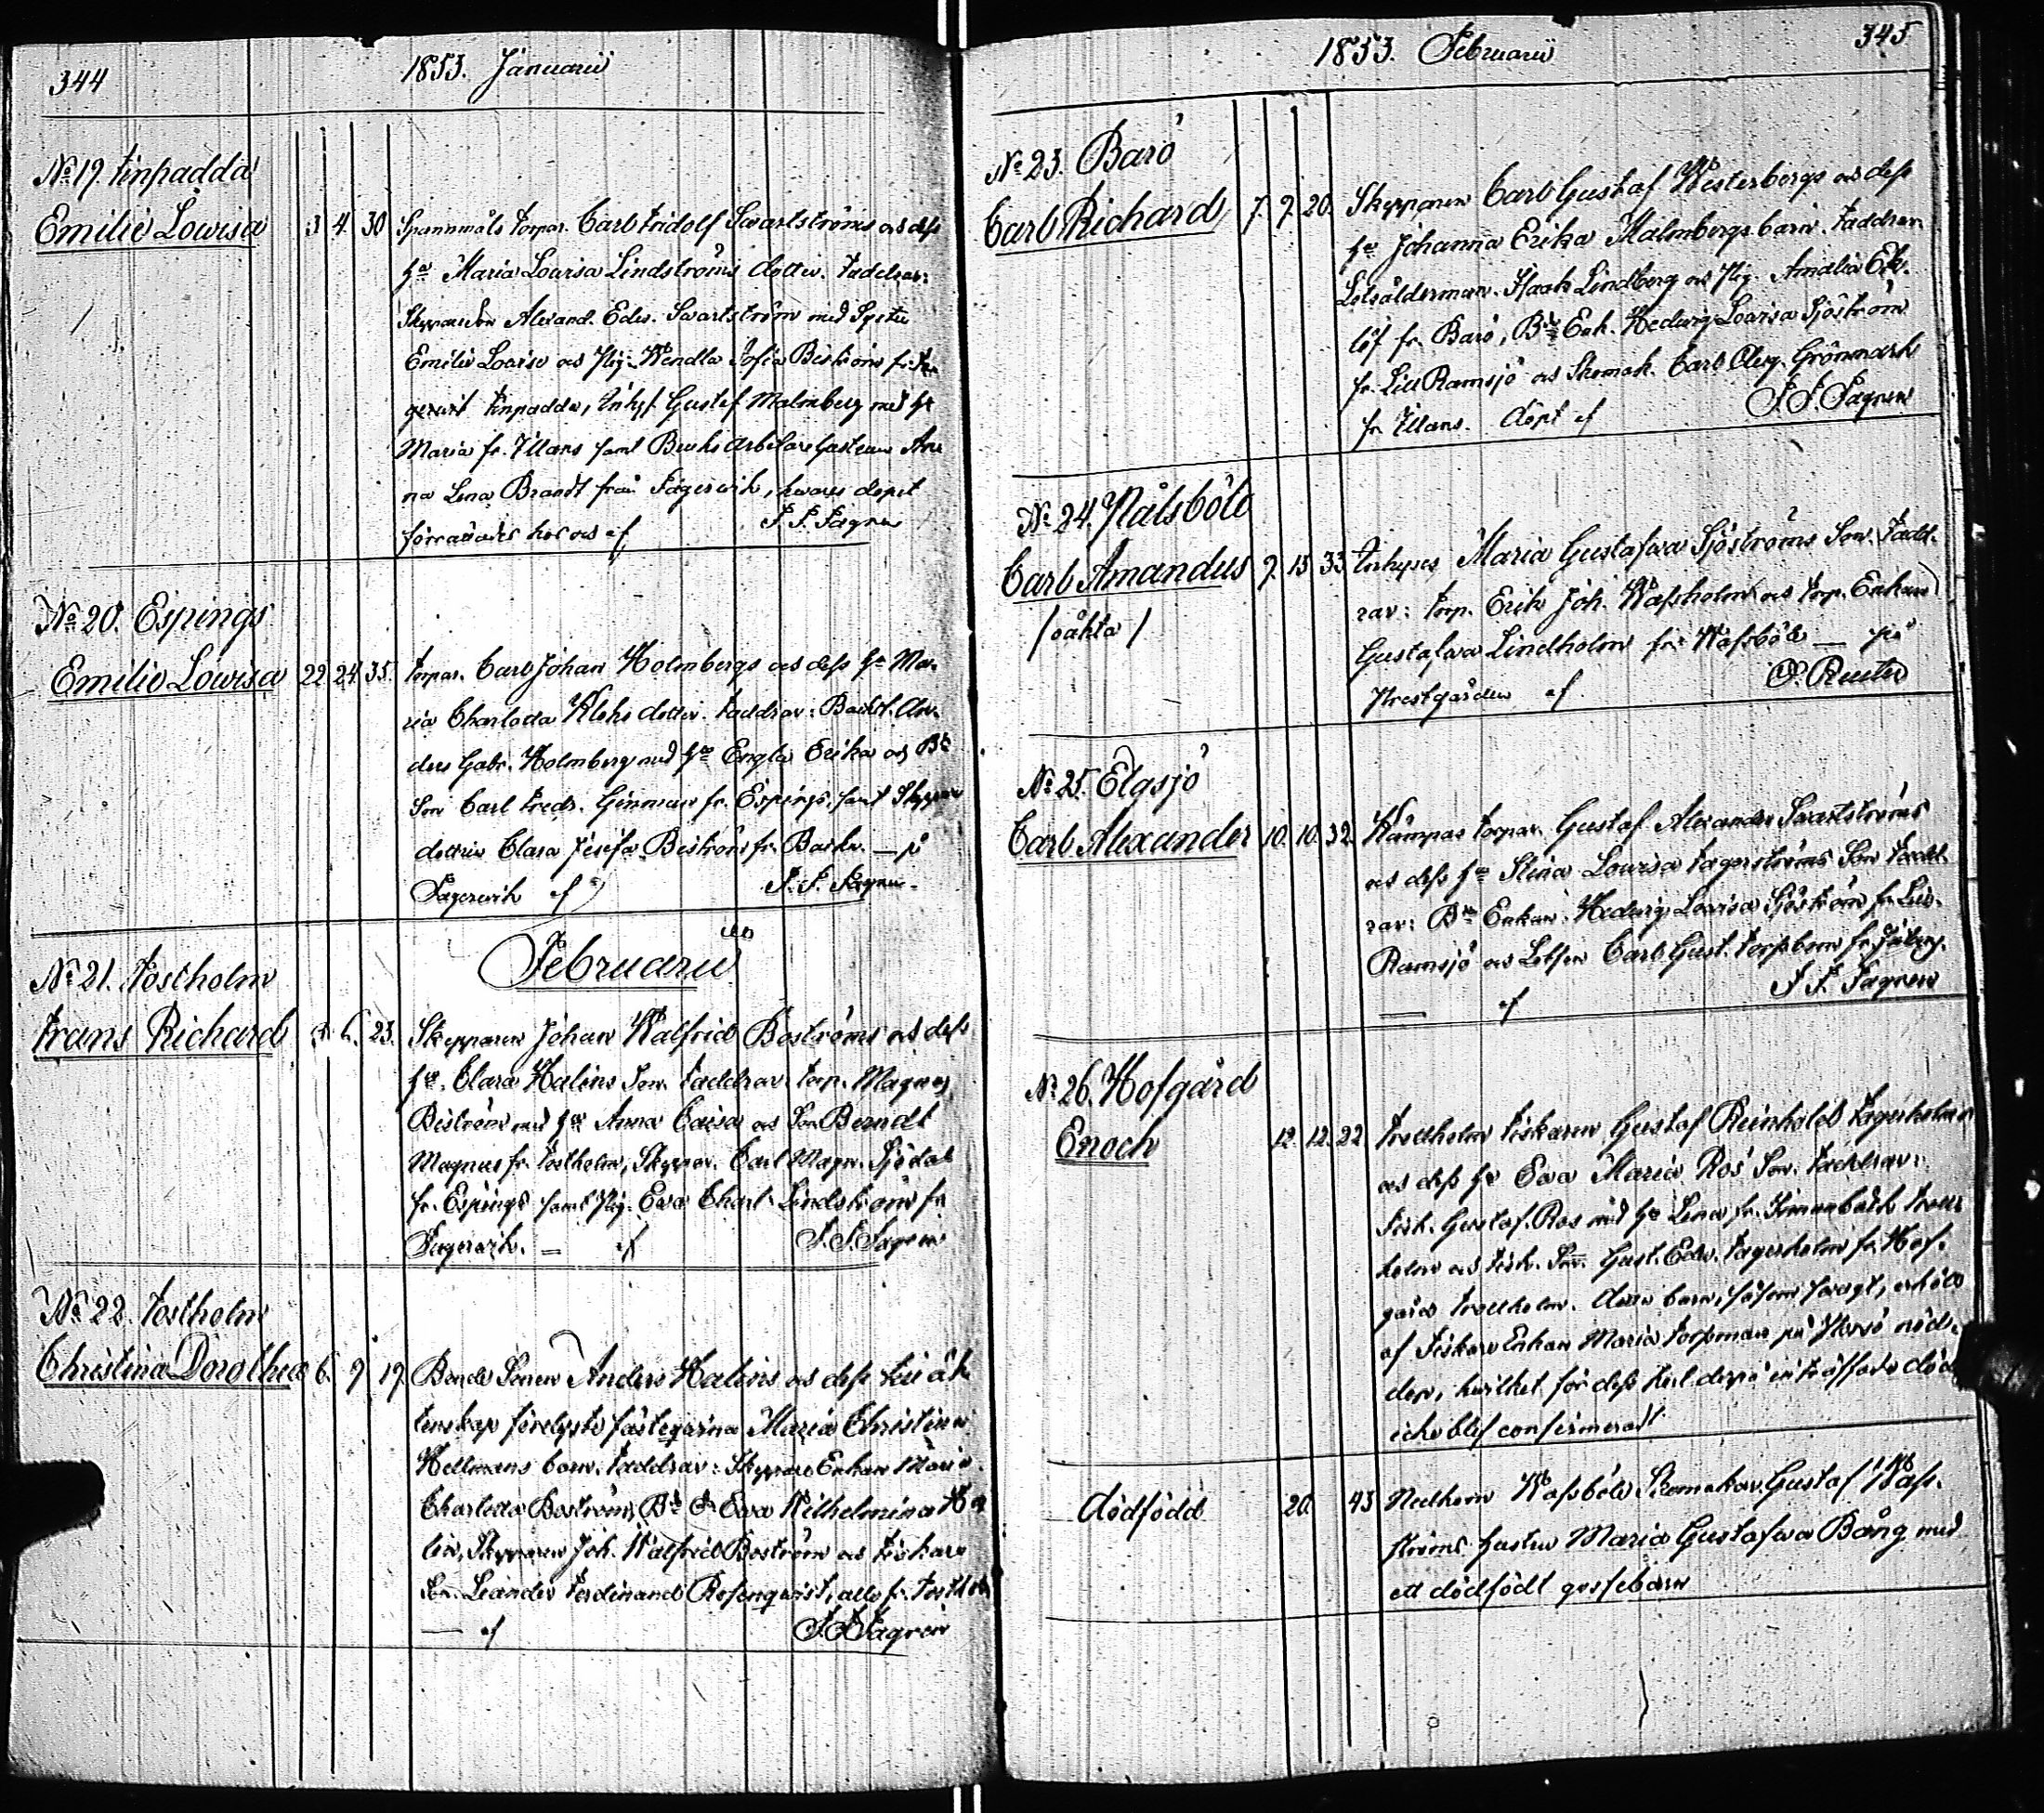 344
1853. Januarii
No 19. Finpadda
Emilie Lowisa 3. 4. 30 Spannmåls torpar. Carl Fridolf Swartströms och dess
hu Maria Lovisa Lindströms dotter. Faddrar:
Skeppareson Alexand. Edv. Swartström med Syster
Emilie Lovise och Pig. Wendla Sofia Biström fr.
Finpadda, Inhys. Gustaf Malmberg med hu
Maria fr. Illans samt Bruks Arbetare hustrun An
na Lena Brandt från Fagerwik, hwares dopet
förrättades hos oss af F. F. Fagren
No 20. Espings
Emilie Lowisa 22. 24. 35. torpar. Carl Johan Holmbergs och dess hu Ma-
ria Charlotta Kloks dotter. Faddrar: Backst. An-
ders Gabr. Holmberg med hu Engla Erika och Bde
Son Carl Fredr. Ginman fr. Espings, samt Skeppare
dottren Clara Josefa Biström fr. Barlu. — på
Fagerwik af F. F. Fagren.
Februarii
No 21. Tostholm
Frans Richard 6. 23. Skepparen Johan Walfrid Boströms och dess
hu. Clara Halins Son. Faddrar. Torp. Magnus
Biström med hu Anna Caisa och Son Berndt
Magnus fr. Tostholm, Skeppar. Carl Magn. Sjödal
fr. Espings samt Pig. Eva Charl. Lindström fr
Fagerwik. — af F. F. Fagren
No 22. Tostholm
Christina Dorothea 6. 9. 19. Bonde Sonen Anders Halins och dess till äk
tenskap förelyste fästeqvinna Maria Christina
Hellmans barn. Faddrar: Skeppare Enkan Maria
Charlotta Boström, Bde Eva Wilhelmina Ha
lin, Skepparen Joh. Walfrid Boström och Fiskare
Son Leander Ferdinand Rosenqwist, alla fr. Tostholm
— af F. F. Fagren
345
1853. Februarii
No 23. Barö
Carl Richard 7. 9. 20. Skepparen Carl Gustaf Westerbergs och dess
hu Johanna Erika Malmbergs barn. Faddrar
Lotsålderman. Isaak Lindberg och Pig. Amalia Ek-
löf fr. Barö, Bde Enk. Hedwig Lovisa Sjöström
fr. Lill Ramsjö och Skomak. Carl Grönmark
fr Illans. döpt af F. F. Fagren
No 24. Nålsböle
Carl Amandus 9. 15 33 Inhyses Maria Gustafwa Sjöströms Son. Fadd-
/oäkta/ rar: Torp. Erik Joh. Wassholm och Torp. Enkan
Gustafwa Lindholm fr Wassböle — på
Prestgården af O. Reuter
No 25. Elgsjö
Carl Alexander 10. 10. 32. Kämpas torpar. Gustaf Alexander Swartströms
och dess hu Stina Lowisa Fagerströms Son Fadd-
rar: Bde Enkan Hedwig Lovisa Sjöström fr Lill-
Ramsjö och Lotsen Carl Gust. Torssbom fr.
— af F. F. Fagren
No 26. Hofgård
Enoch 12. 12. 22 Trollholm Fiskaren Gustaf Reinhold Fagerholms
och dess hu Eva Maria Ros Son. Faddrar:
Fisk. Gustaf Ros med hu Lena fr. Troll
holm och Fisk. Son. Gust. Edv. Fagerholm fr. Hof-
gård Trollholm. Detta barn, såsom swagt, erhöll
af Fiskare Enkan Maria Torssman på nöd-
dop, hwilket för dess kort derpå inträffade död
icke blef confirmeradt
dödfödd 20. 43 Nedkom Wassböle Skomakar. Gustaf Wass-
ströms hustru Maria Gustafwa Bång med
ett dödfödt gossebarn